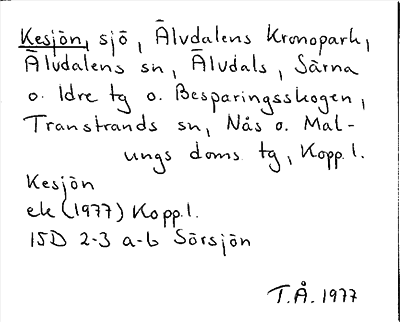 Kesjön, sjö, Älvdalens Kronopark,
Älvdalens sn, Älvdals, Särna
o. Idre tg o. Besparingsskogen,
Transtrands sn, Nås o. Mal-
ungs doms. tg, Kopp.l.
Kesjön
ek (1977) Kopp.l.
15D 2-3 a-b Sörsjön
T.Å. 1977